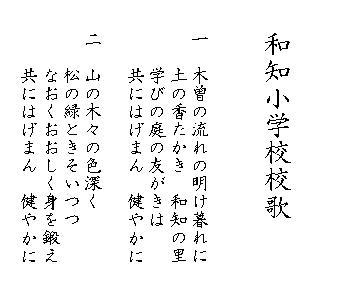 和知小学校校歌
一 木曽の流れの明け暮れに
土の香たかき 和知の里
学びの庭の友がきは
共にはげまん 健やかに
二 山の木々の色深く
松の緑ときそいつつ
なおくおおしく身を鍛え
共にはげまん 健やかに